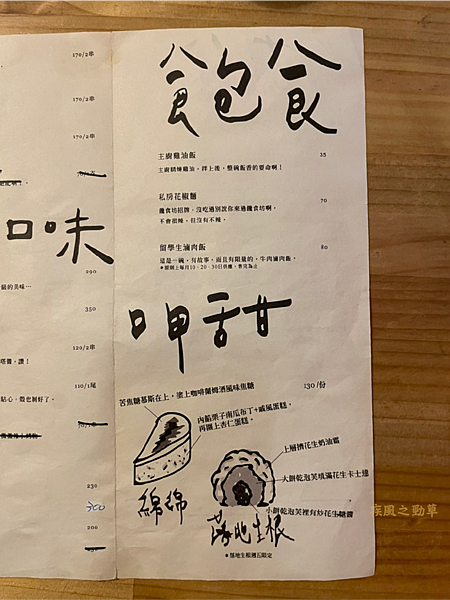 飽食
170/2串
170/2串
170/2串
主廚雞油飯 35
主廚精煉雞油，拌上後，整碗飯香的要命啊！
私房花椒麵 70
饞食坊招牌，沒吃過別說你來過饞食坊啊，
不會很辣，但沒有不辣。
留學生滷肉飯 80
這是一碗，有故事，而且有限量的，牛肉滷肉飯。
*期間上每月10、20、30日供應，售完為止
口味
290
個的美味…
350
120/2串
塔醬，讚！
110/1尾
貼心，殼也剝好了。
230
200
200
呷甜
苦焦糖慕斯在上，塗上咖啡蘭姆酒風味焦糖 130/份
內餡栗子南瓜布丁+戚風蛋糕，
再圍上杏仁蛋糕。
上層擠花生奶油霜
大餅乾泡芙填滿花生卡士達
小餅乾泡芙裡有炒花生糖醬
綿綿
落地生根
*落地生根週五限定
疾風之勁草